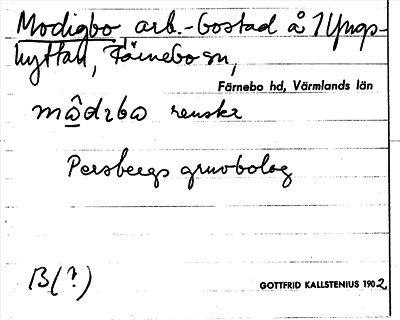 Modigbo, arb.-bostad å Yngs-
hyttan, Färnebo sn,
Färnebo hd, Värmlands län
Persbergs gruvbolag
B(?)
GOTTFRID KALLSTENIUS 1902